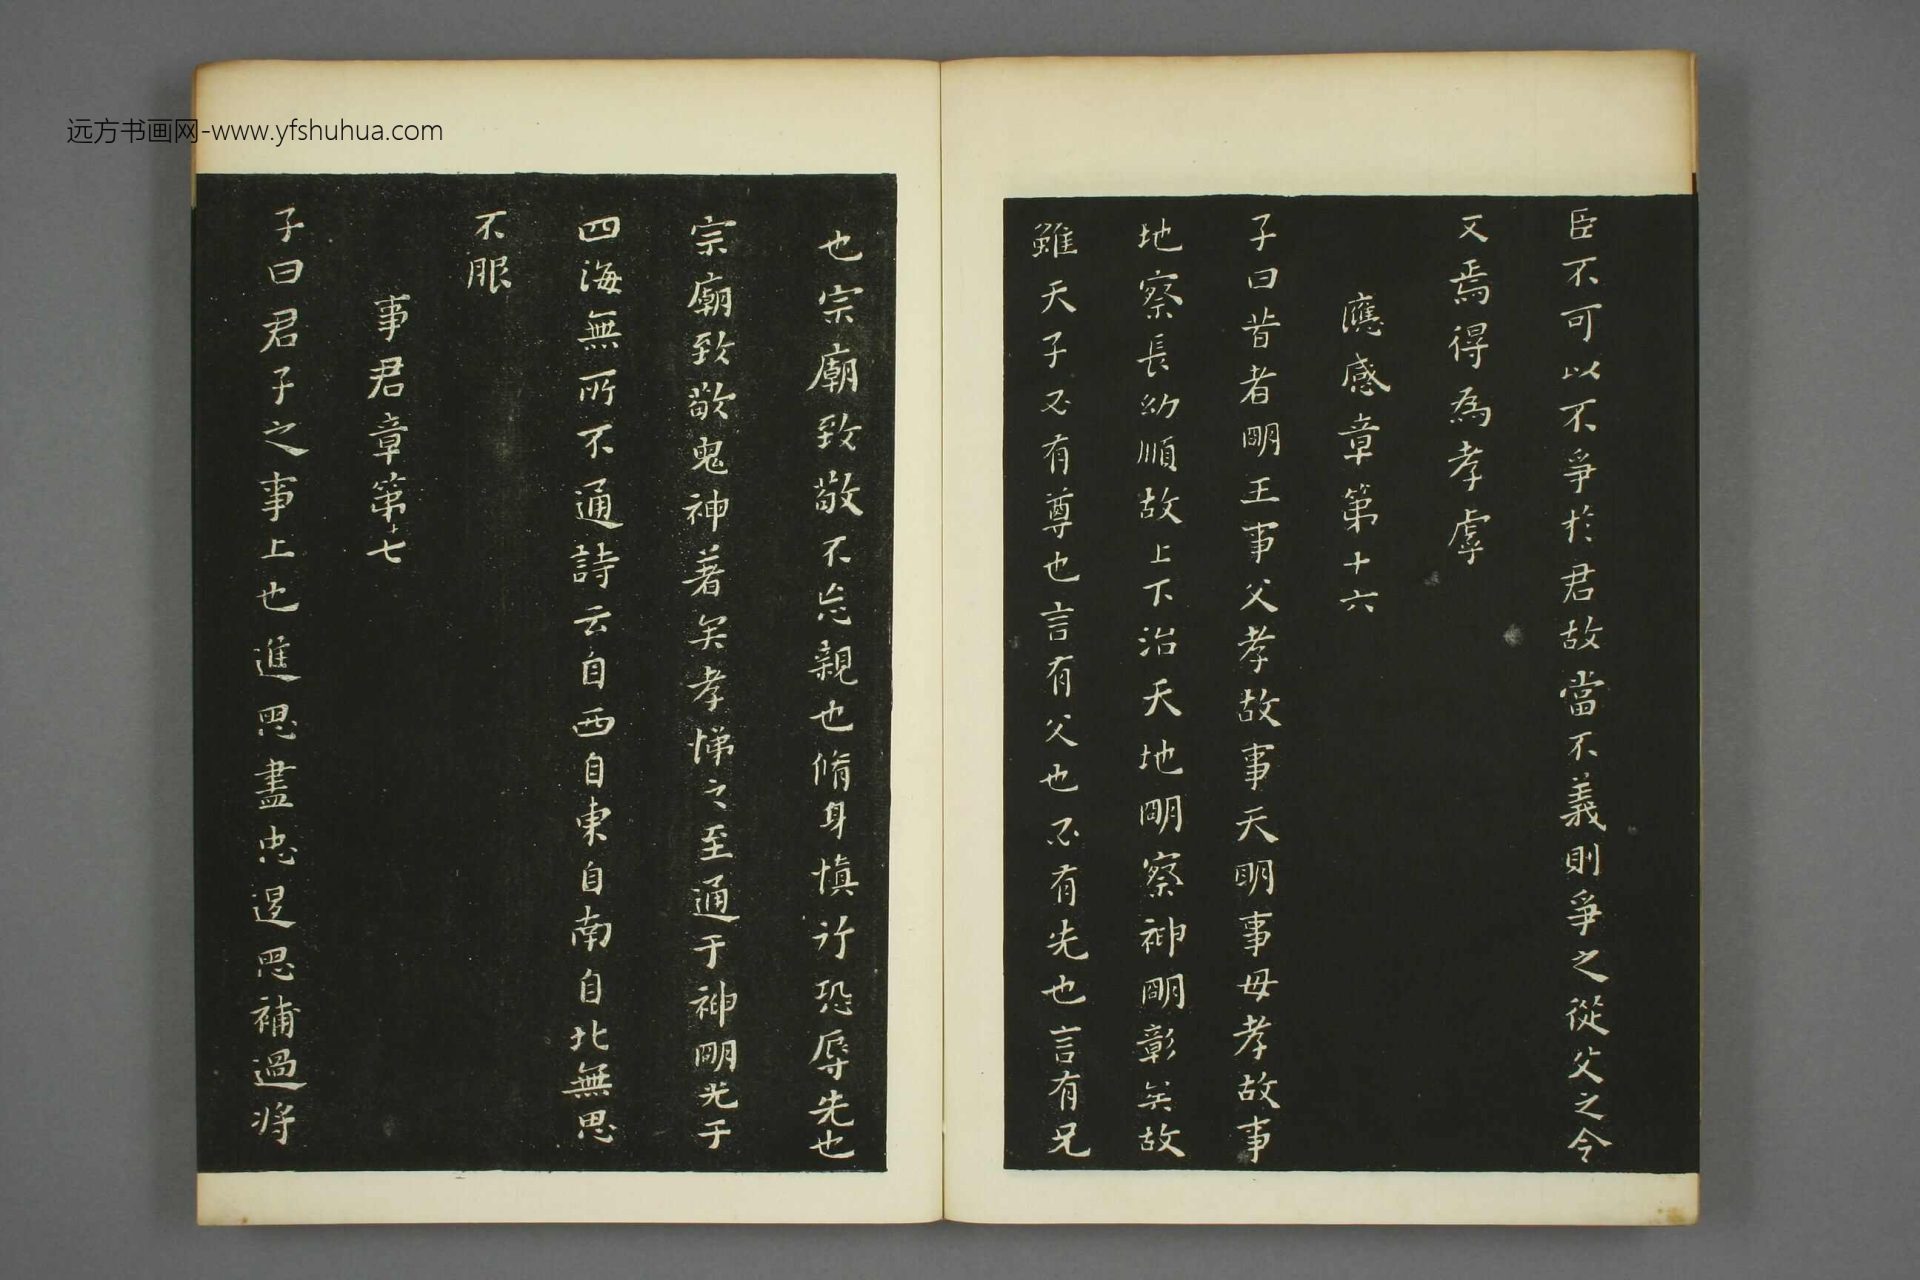 远方书画网-www.yfshuhua.com
臣不可以不爭於君故當不義則爭之從父之令
又焉得為孝虖
應感章第十六
子曰昔者明王事父孝故事天明事母孝故事
地察長幼順故上下治天地明察神明彰矣故
雖天子必有尊也言有父也必有先也言有兄
也宗廟致敬不忘親也脩身慎行恐辱先也
宗廟致敬鬼神著矣孝悌之至通于神明光于
四海無所不通詩云自西自東自南自北無思
不服
事君章第十七
子曰君子之事上也進思盡忠退思補過将